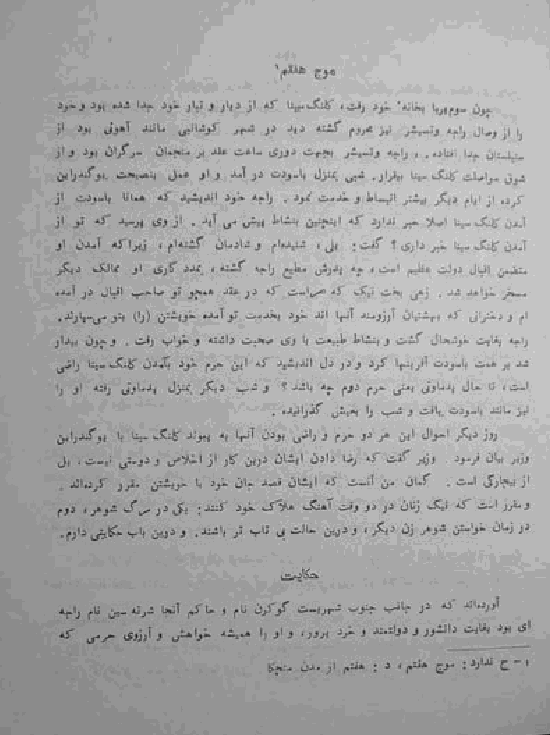 موج هفتم¹
چون سوم‌پربا بخانه خود رفت، کلنگ‌سینا که از دیار و تبار خود جدا شده بود و خود
را از وصال راجه وتسیشر نیز محروم گشته دید در شهر کوشانبی مانند آهوئی بود از
جدا افتاده. راجه وتسیشر بجهت دوری ساعت عقد بر منجمان سرگران بود و از
شوق مواصلت کلنگ سینا بیقرار. شبی بمنزل باسودت در آمد و او عمل بنصیحت یوگندراین
کرده از ایام دیگر بیشتر انبساط و خدمت نمود. راجه خود اندیشید که همانا باسودت از
آمدن کلنگ سینا اصلا خبر ندارد که اینچنین بنشاط پیش می آید. از وی پرسید که تو از
آمدن کلنگ سینا خبر داری؟ گفت: بلی، شنیده‌ام و شادمان گشته‌ام، زیرا که آمدن او
متضمن اقبال دولت عظیم است، چه پدرش مطیع راجه گشته، بمددگاری او ممالک دیگر
مسخر خواهد شد. زهی بخت نیک که مراست که در عقد همچو تو صاحب اقبال در آمده
ام و دخترانی که پیشینیان آرزومند آنها اند خود بخدمت تو آمده خویشتن (را) بتو می‌سپارند.
راجه بغایت خوشحال گشت و بنشاط طبیعت با وی صحبت داشته و خواب رفت. و چون بیدار
شد بر همت باسودت آفرینها کرد و در دل اندیشید که این حرم خود بآمدن کلنگ سینا راضی
است، تا حال پدماوتی یعنی حرم دوم چه باشد؟ و شب دیگر بمنزل پدماوتی رفته او را
نیز مانند باسودت یافت و شب را بعیش گذرانید.
روز دیگر احوال این هر دو حرم و راضی بودن آنها به پیوند کلنگ سینا با یوگندراین
وزیر بیان فرمود. وزیر گفت که رضا دادن ایشان درین کار از اخلاص و دوستی نیست، بل
از بیچارگی است. گمان من آنست که ایشان قصد جان خود با خویشتن مقرر کرده‌اند.
و مقرر است که نیک زنان در دو وقت آهنگ هلاک خود کنند: یکی در مرگ شوهر، دوم
در زمان خواستن شوهر زن دیگر، و درین حالت بی تاب تر باشند. و درین باب حکایتی دارم.
حکایت
آورده‌اند که در جانب جنوب شهریست گوکرن نام و حاکم آنجا شرته سین نام راجه
ای بود بغایت دانشور و دولتمند و خرد پرور، و او را همیشه خواهش و آرزوی حرمی که
۱- ح ندارد: موج هفتم، د: هفتم از مدن منچکا